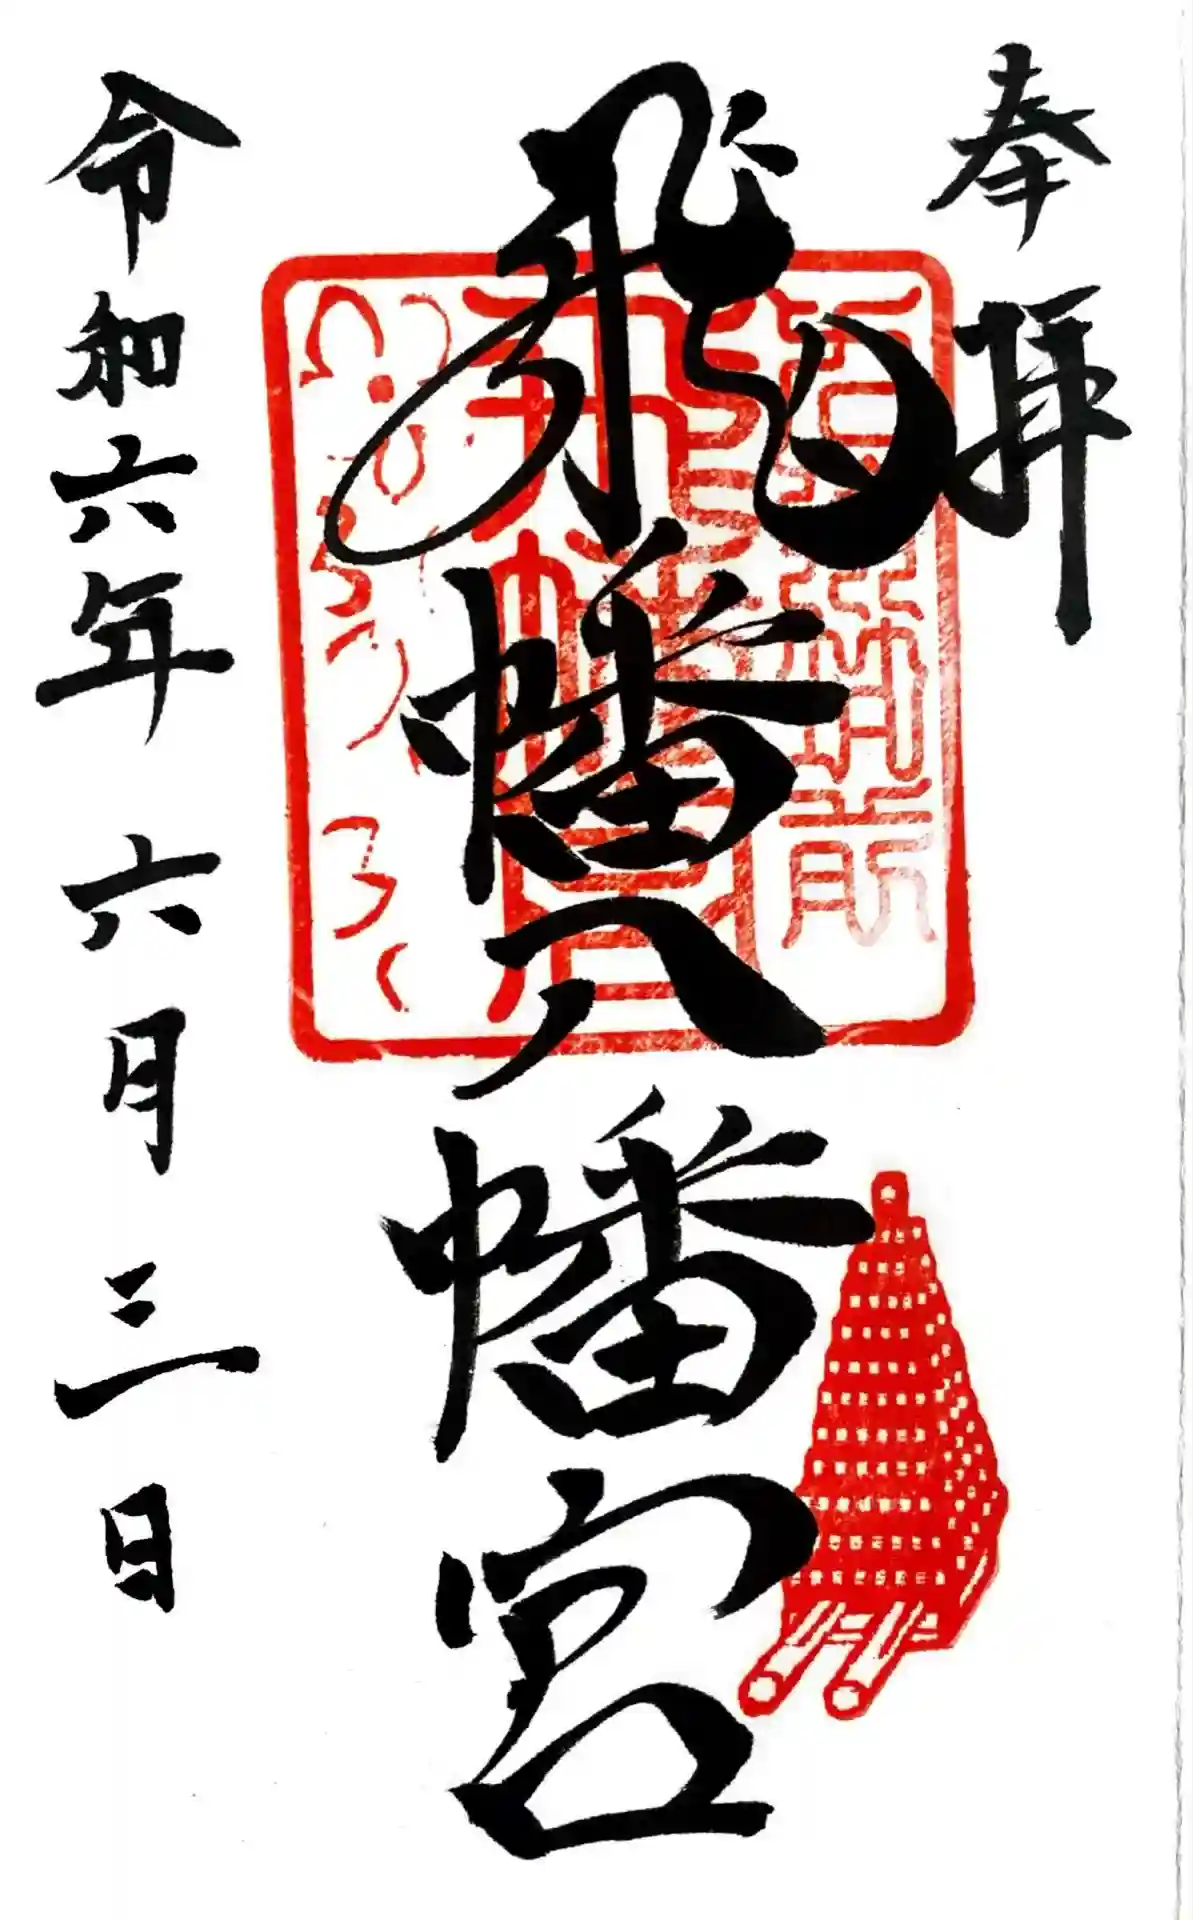 奉拝
飛幡八幡宮
令和六年六月三日